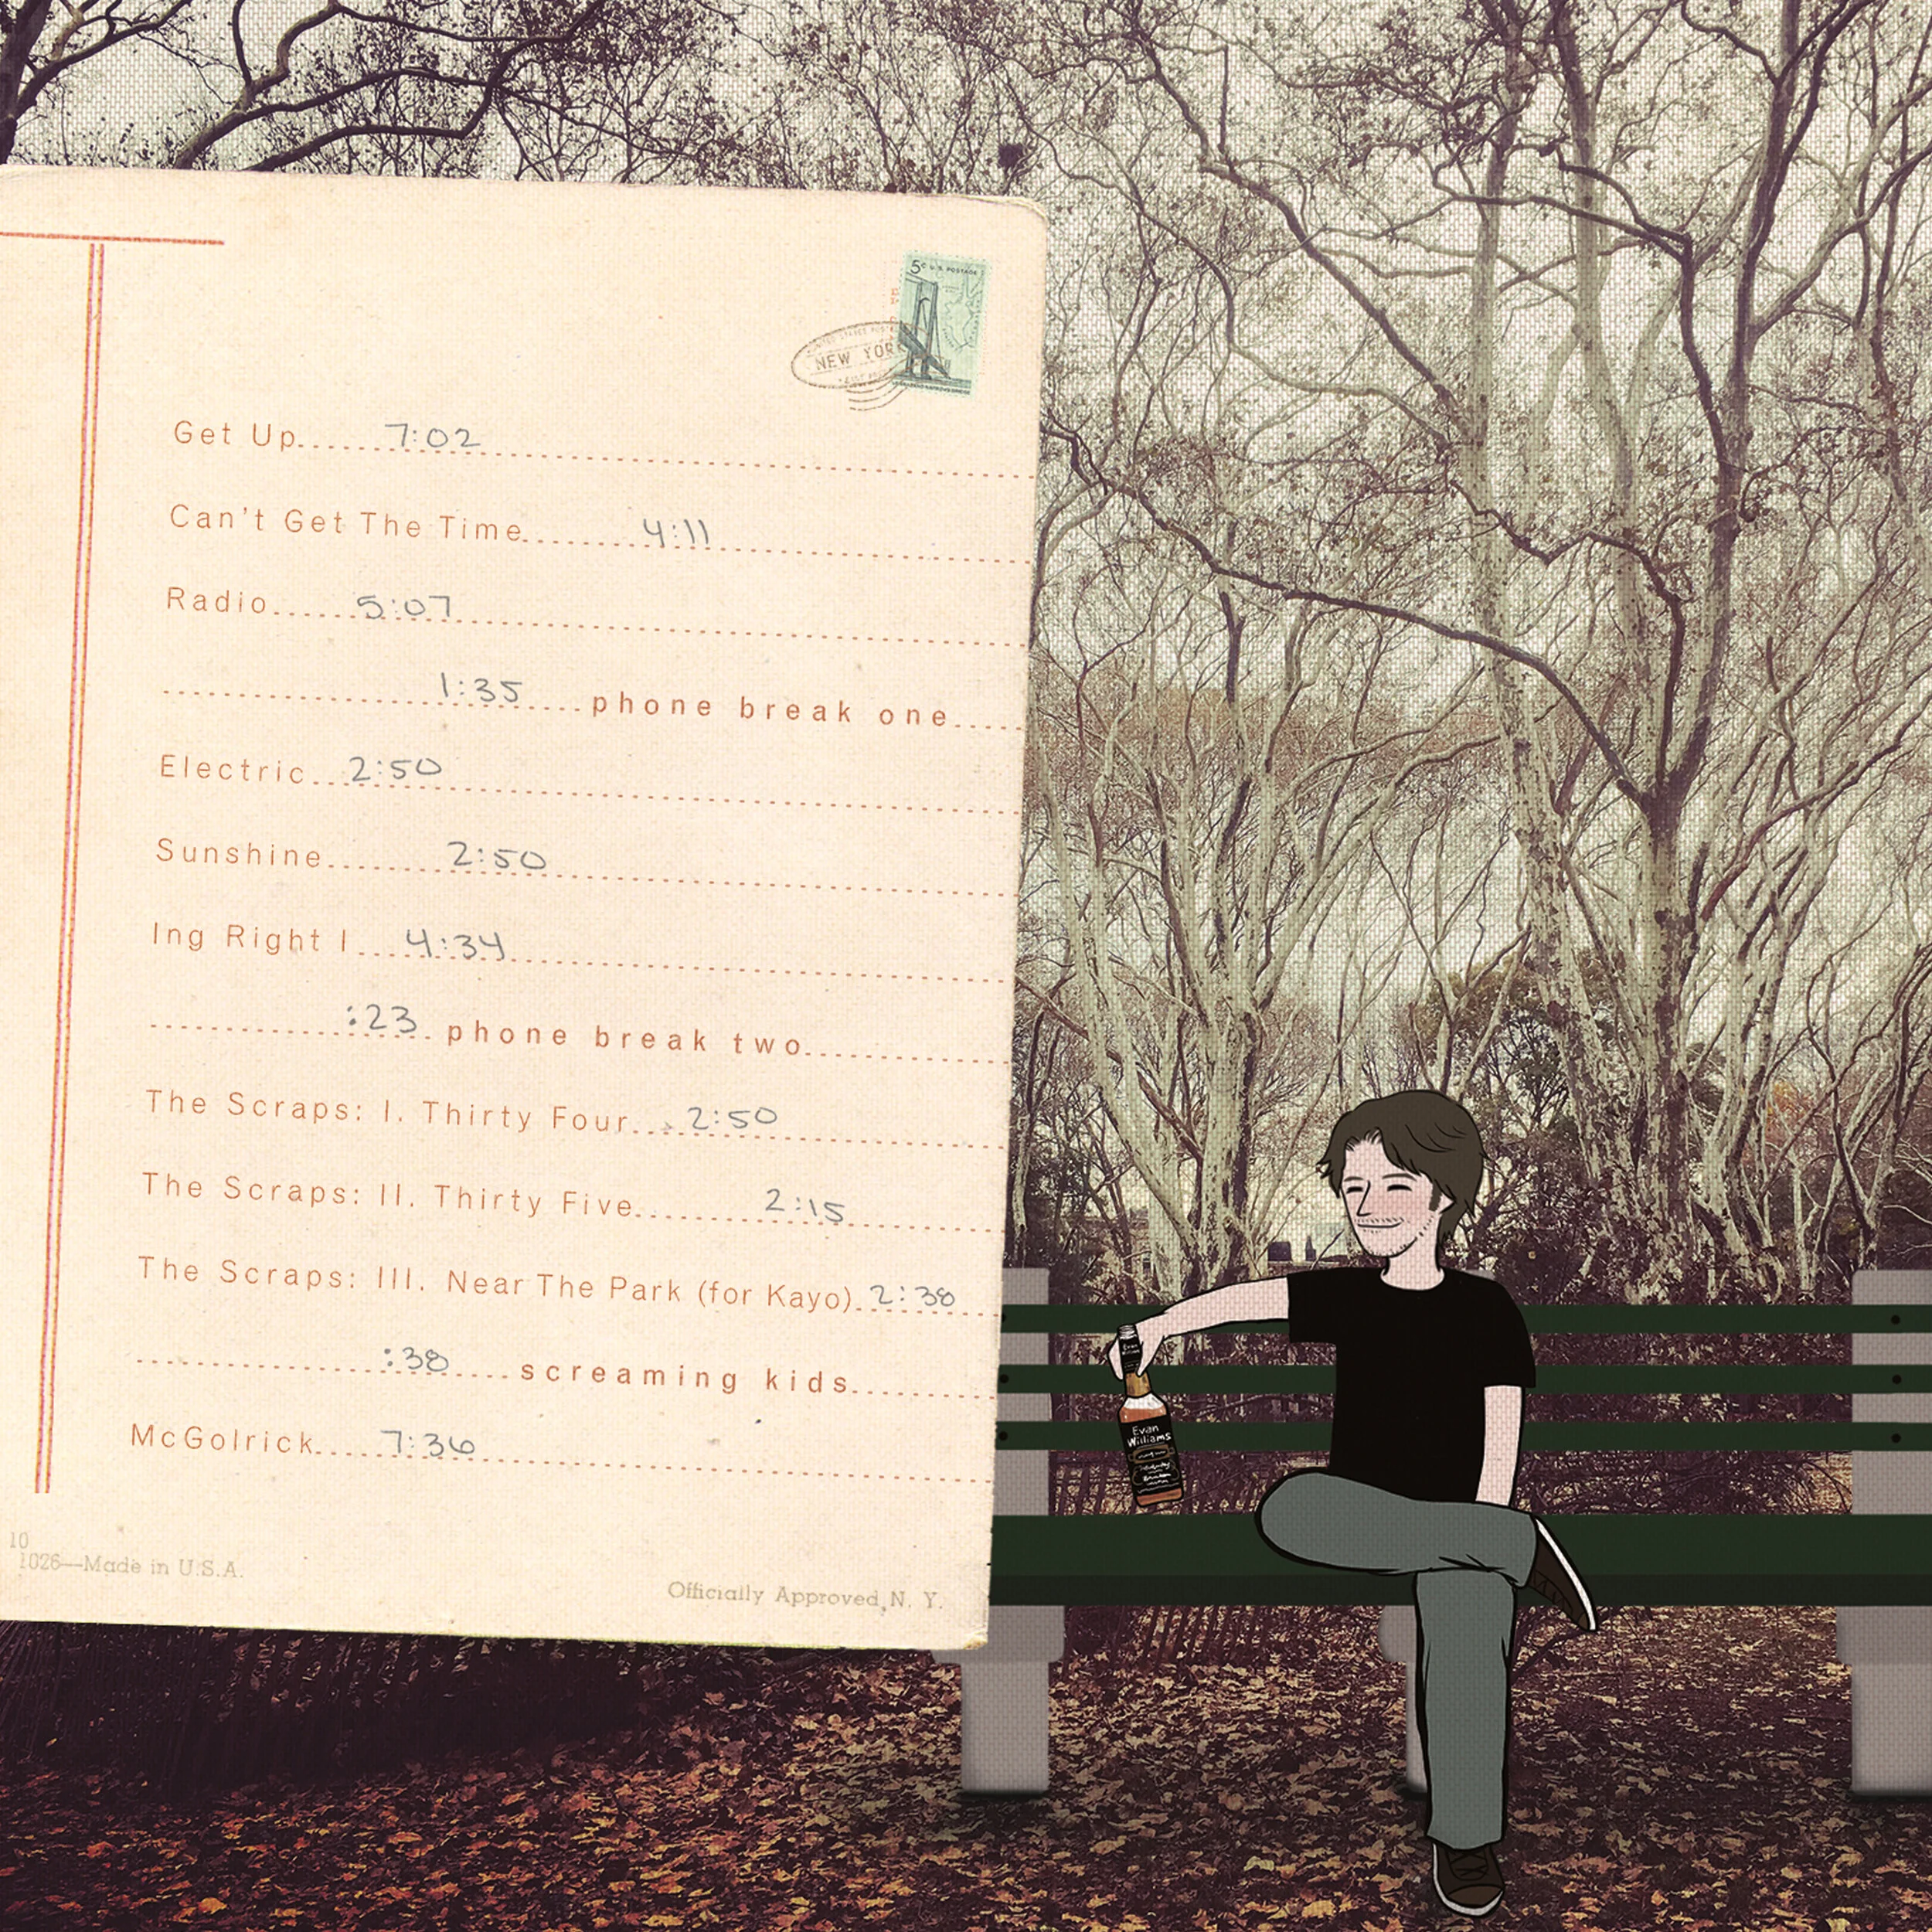 5¢ U.S. POSTAGE
UNITED STATES POSTAL
NEW YORK
Get Up......7:02
Can't Get The Time......4:11
Radio......5:07
1:35....phone break one
Electric...2:50
Sunshine.......2:50
Ing Right I...4:34
:23.phone break two
The Scraps: I. Thirty Four...2:50
The Scraps: II. Thirty Five......2:15
The Scraps: III. Near The Park (for Kayo).2:38
:38....screaming kids
McGolrick.....7:36
10
1026—Made in U.S.A.
Officially Approved, N. Y.
Evan
Williams
Evan
Williams